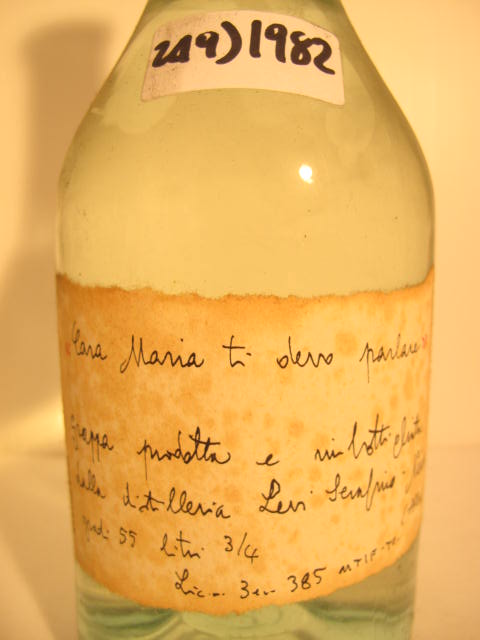 249) 1982
"Cara Maria ti devo parlare"
grappa prodotta e imbottigliata
dalla distilleria Levi Serafino
gradi 55 litri 3/4
Lic. n. 3 385 MTIF-TO